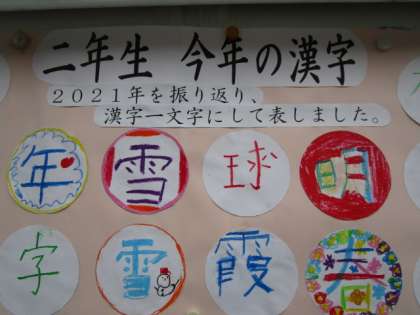 二年生 今年の漢字
２０２１年を振り返り、
漢字一文字にして表しました。
年 雪 球 明
字 雪 霞 春